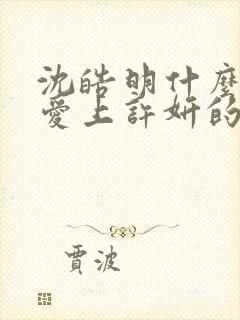 沈皓明什麼
愛上許妍的
賈波